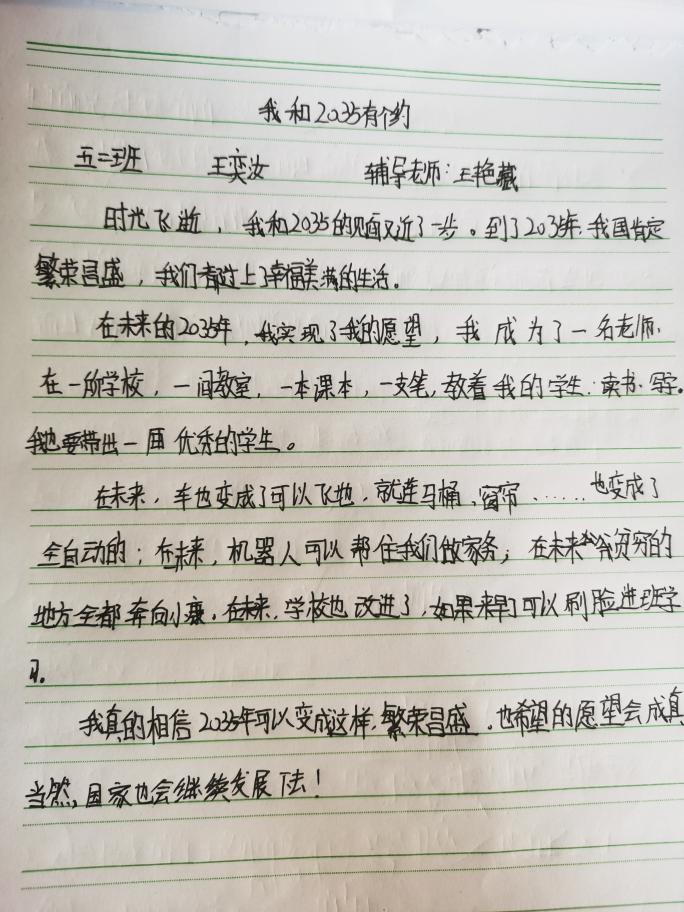 我和2035有个约
五二班 王奕汝 辅导老师：王艳藏
时光飞逝，我和2035的见面又近了一步。到了2035年，我国肯定
繁荣昌盛，我们都过上了幸福美满的生活。
在未来的2035年，我实现了我的愿望，我成为了一名老师，
在一所学校，一间教室，一本课本，一支笔，教着我的学生：读书·写字。
我也要带出一届优秀的学生。
在未来，车也变成了可以飞地，就连马桶，窗帘……也变成了
全自动的；在未来，机器人可以帮住我们做家务；在未来贫穷的
地方全都奔向小康。在未来，学校也改进了，如果来早了可以刷脸进班学
习。
我真的相信2035年可以变成这样，繁荣昌盛。也希望的愿望会成真
当然，国家也会继续发展下去！